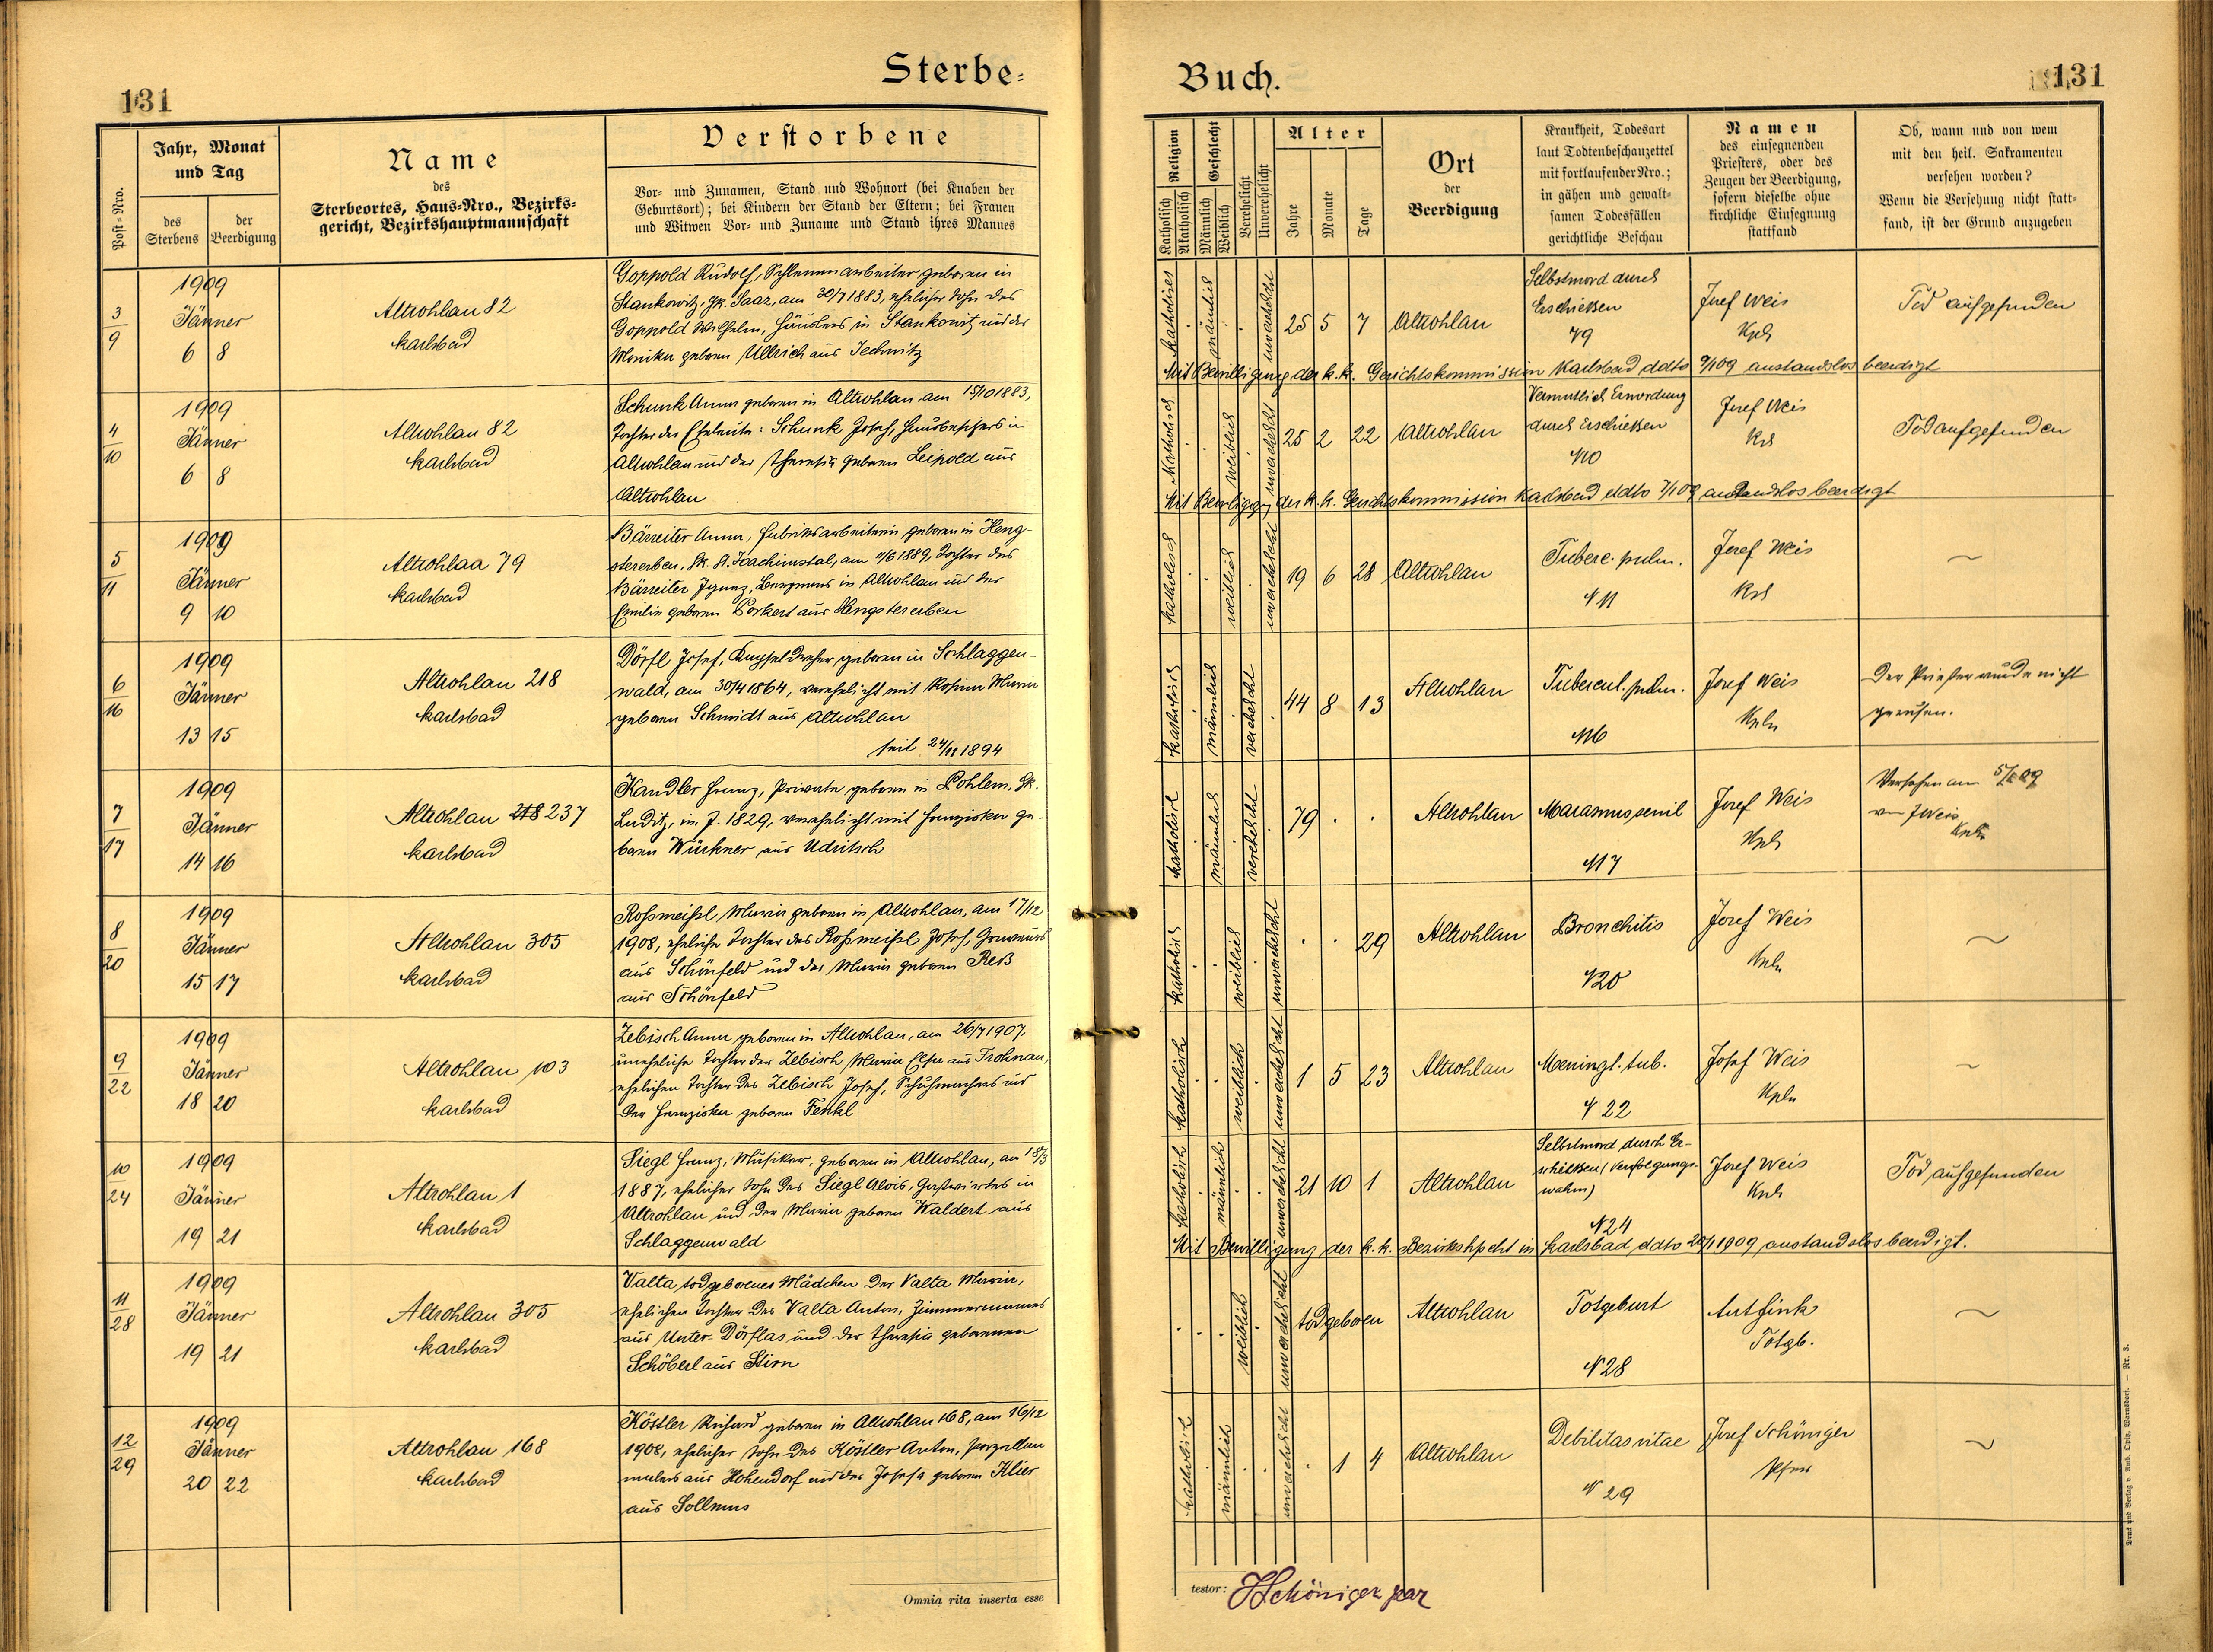 131
Sterbe-
Post-Nro.
Jahr, Monat
und Tag
des
Sterbens
der
Beerdigung
Name
des
Sterbeortes, Haus-Nro., Bezirks-
gericht, Bezirkshauptmannschaft
Verstorbene
Vor- und Zunamen, Stand und Wohnort (bei Knaben der
Geburtsort); bei Kindern der Stand der Eltern; bei Frauen
und Witwen Vor- und Zuname und Stand ihres Mannes
3
9
1909
Jänner
6 8
Altrohlau 82
Karlsbad
Goppold Rudolf, Schlemmarbeiter, geboren in
Stankowitz, Gk. Saaz, am 30/7 1883, ehelicher Sohn des
Goppold Wilhelm, Häuslers in Stankowitz und der
Monika geboren Ullrich aus Techwitz
4
10
1909
Jänner
6 8
Altrohlau 82
Karlsbad
Schunk Anna geboren in Altrohlau am 15/10 1883,
Tochter der Eheleute: Schunk Josef, Hausbesitzers in
Altrohlau und der Theresia geboren Leipold aus
Altrohlau
5
11
1909
Jänner
9 10
Altrohlaa 79
Karlsbad
Bärreiter Anna, Fabriksarbeiterin geboren in Heng-
stererben, Bk. St. Joachimstal, am 11/6 1889, Tochter des
Bärreiter Ignaz, Bergmanns in Altrohlau und der
Emilie geboren Porkert aus Hengstererben
6
16
1909
Jänner
13 15
Altrohlau 218
Karlsbad
Dörfl Josef, Kapseldreher geboren in Schlaggen-
wald, am 30/4 1864, verehelicht mit Rosina Maria
geboren Schmidt aus Altrohlau
seit 24/11 1894
7
17
1909
Jänner
14 16
Altrohlau 218 237
Karlsbad
Kandler Franz, Private geboren in Pohlem, Gk.
Luditz, im J. 1829, verehelicht mit Franziska ge-
boren Würkner aus Udritsch
8
20
1909
Jänner
15 17
Altrohlau 305
Karlsbad
Roßmeißl Maria geboren in Altrohlau, am 17/12
1908, eheliche Tochter des Roßmeißl Josef, Graveurs
aus Schönfeld und der Maria geboren Reß
aus Schönfeld
9
22
1909
Jänner
18 20
Altrohlau 103
Karlsbad
Zebisch Anna geboren in Altrohlau, am 26/7 1907,
uneheliche Tochter der Zebisch Maria Elsa aus Frohnau,
ehelichen Tochter des Zebisch Josef, Schuhmachers und
der Franziska geboren Fenkl
10
24
1909
Jänner
19 21
Altrohlau 1
Karlsbad
Siegl Franz, Musiker, geboren in Altrohlau, am 18/3
1887, ehelicher Sohn des Siegl Alois, Gastwirtes in
Altrohlau und der Maria geboren Waldert aus
Schlaggenwald
11
28
1909
Jänner
19 21
Altrohlau 305
Karlsbad
Valta, todgeborenes Mädchen der Valta Maria,
ehelichen Tochter des Valta Anton, Zimmermannes
aus Unter-Dörflas und der Theresia geborenen
Schöberl aus Stirn
12
29
1909
Jänner
20 22
Altrohlau 168
Karlsbad
Köstler Richard geboren in Altrohlau 168, am 16/12
1908, ehelicher Sohn des Köstler Anton, Porzellan
malers aus Hohendorf und der Josefa geboren Klier
aus Sollmus
Omnia rita inserta esse
Buch.
131
Religion
Katholisch
Akatholisch
Geschlecht
Männlich
Weiblich
Verehelicht
Unverehelicht
Alter
Jahre
Monate
Tage
Ort
der
Beerdigung
Krankheit, Todesart
laut Todtenbeschauzettel
mit fortlaufender Nro.;
in gähen und gewalt-
samen Todesfällen
gerichtliche Beschau
Namen
des einsegnenden
Priesters, oder des
Zeugen der Beerdigung,
sofern dieselbe ohne
kirchliche Einsegnung
stattfand
Ob, wann und von wem
mit den heil. Sakramenten
versehen worden?
Wenn die Versehung nicht statt-
fand, ist der Grund anzugeben
katholisch männlich unverehelicht
25 5 7 Altrohlau
Selbstmord durch
Erschießen
79
Josef Weis
Kpl
Tod aufgefunden
Mit Bewilligung der k. k. Gerichtskommission Karlsbad ddto 7/1 09 anstandslos beerdigt
katholisch weiblich unverehelicht
25 2 22 Altrohlau
Vermutlich Ermordung
durch Erschießen
N10
Josef Weis
Kpl
Tod aufgefunden
Mit Bewilligg. der k. k. Gerichtskommission Karlsbad ddto 7/1 09 anstandslos beerdigt
katholisch weiblich unverehelicht
19 6 28 Altrohlau
Tuberc. pulm.
N 11
Josef Weis
Kpl
katholisch männlich verehelicht
44 8 13 Altrohlau
Tubercul. pulm.
N16
Josef Weis
Kpln
Der Priester wurde nicht
gerufen.
katholisch männlich verehelicht
79 Altrohlau
Marasmus senil
N17
Josef Weis
Kpl
Versehen am 5/1 09
von J Weis
Kpln
katholisch weiblich unverehelicht
29 Altrohlau
Bronchitis
N20
Josef Weis
Kpln
katholisch weiblich unverehelicht
1 5 23 Altrohlau
Meningt. tub.
N 22
Josef Weis
Kpln
katholisch männlich unverehelicht
21 10 1 Altrohlau
Selbstmord durch Er-
schießen (Verfolgungs-
wahn)
N24
Josef Weis
Kpl
Tod aufgefunden
Mit Bewilligung der k. k. Bezirkshpcht in Karlsbad ddto 20/1 1909 anstandslos beerdigt.
weiblich unverehelicht
todgeboren Altrohlau
Totgeburt
N28
Ant Fink
Totgb.
katholisch männlich unverehelicht
1 4 Altrohlau
Debilitas vitae
N 29
Josef Schöniger
Pfarr
testor: JSchöniger par
Druck und Verlag v. Amb. Opitz, Warnsdorf. — Nr. 3.